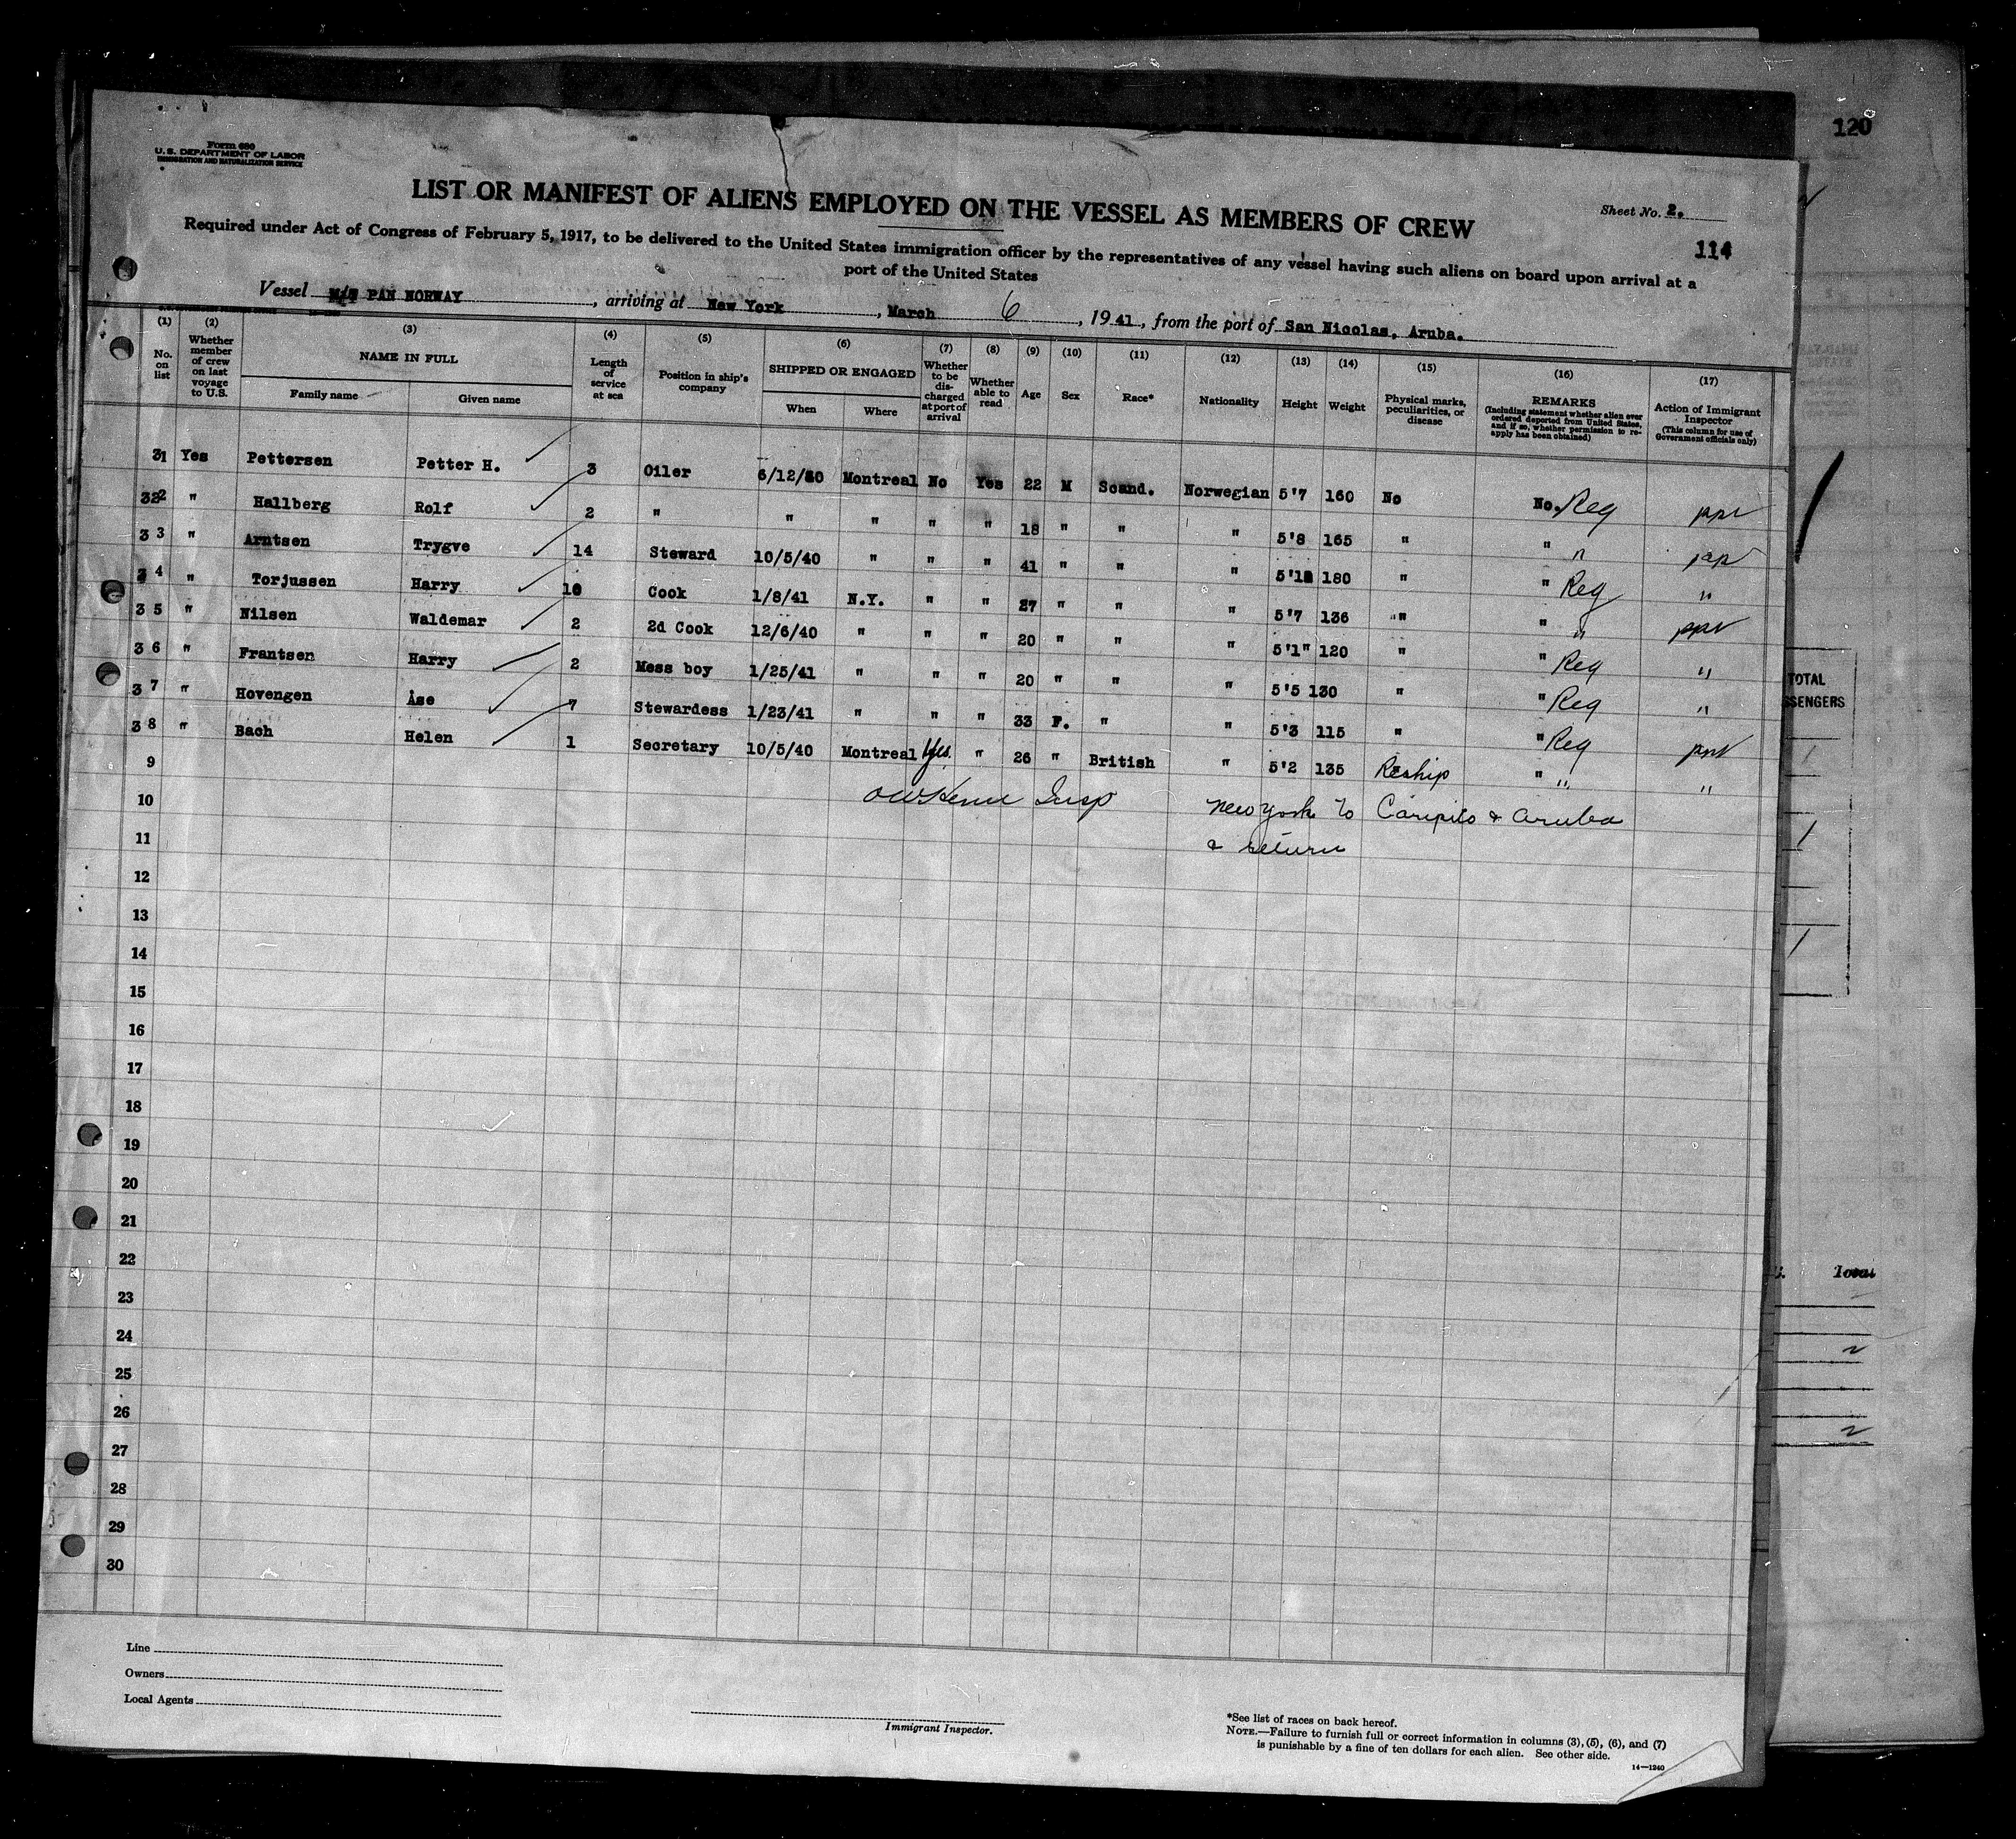 120
Form 680
U. S. DEPARTMENT OF LABOR
IMMIGRATION AND NATURALIZATION SERVICE
LIST OR MANIFEST OF ALIENS EMPLOYED ON THE VESSEL AS MEMBERS OF CREW
Sheet No. 2.
114
Required under Act of Congress of February 5, 1917, to be delivered to the United States immigration officer by the representatives of any vessel having such aliens on board upon arrival at a
port of the United States
Vessel PAN NORWAY, arriving at New York, March 6, 1941, from the port of San Nicolas, Aruba.
(1) (2) (3) (4) (5) (6) (7) (8) (9) (10) (11) (12) (13) (14) (15) (16) (17)
No. on list
Whether member of crew on last voyage to U.S.
NAME IN FULL
Family name
Given name
Length of service at sea
Position in ship's company
SHIPPED OR ENGAGED
When
Where
Whether to be discharged at port of arrival
Whether able to read
Age
Sex
Race*
Nationality
Height
Weight
Physical marks, peculiarities, or disease
REMARKS
(Including statement whether alien ever ordered deported from United States, and if so, whether permission to reapply has been obtained)
Action of Immigrant Inspector
(This column for use of Government officials only)
31 Yes Pettersen Petter H. 3 Oiler 6/12/40 Montreal No Yes 22 M Scand. Norwegian 5'7 160 No No. Reg
32 " Hallberg Rolf 2 " " " " " 18 " " " 5'8 165 " " "
33 " Arntsen Trygve 14 Steward 10/5/40 " " " 41 " " " 180 " " Reg "
34 " Torjussen Harry 10 Cook 1/8/41 N.Y. " " 27 " " " 5'7 136 " " "
35 " Nilsen Waldemar 2 2d Cook 12/6/40 " " " 20 " " " 5'1" 120 " " Reg "
36 " Frantsen Harry 2 Mess boy 1/25/41 " " " 20 " " " 5'5 130 " " Reg "
37 " Hovengen Åse 7 Stewardess 1/23/41 " " " 33 F. " " 5'3 115 " " Reg
38 " Bach Helen 1 Secretary 10/5/40 Montreal Yes. " 26 " British " 5'2 135 Reship " " "
9
10 Insp New York to Caripito & Aruba
11 & return
12
13
14
15
16
17
18
19
20
21
22
23
24
25
26
27
28
29
30
Line
Owners
Local Agents
Immigrant Inspector.
*See list of races on back hereof.
NOTE.—Failure to furnish full or correct information in columns (3), (5), (6), and (7)
is punishable by a fine of ten dollars for each alien. See other side.
14—1240
TOTAL
SENGERS
Total